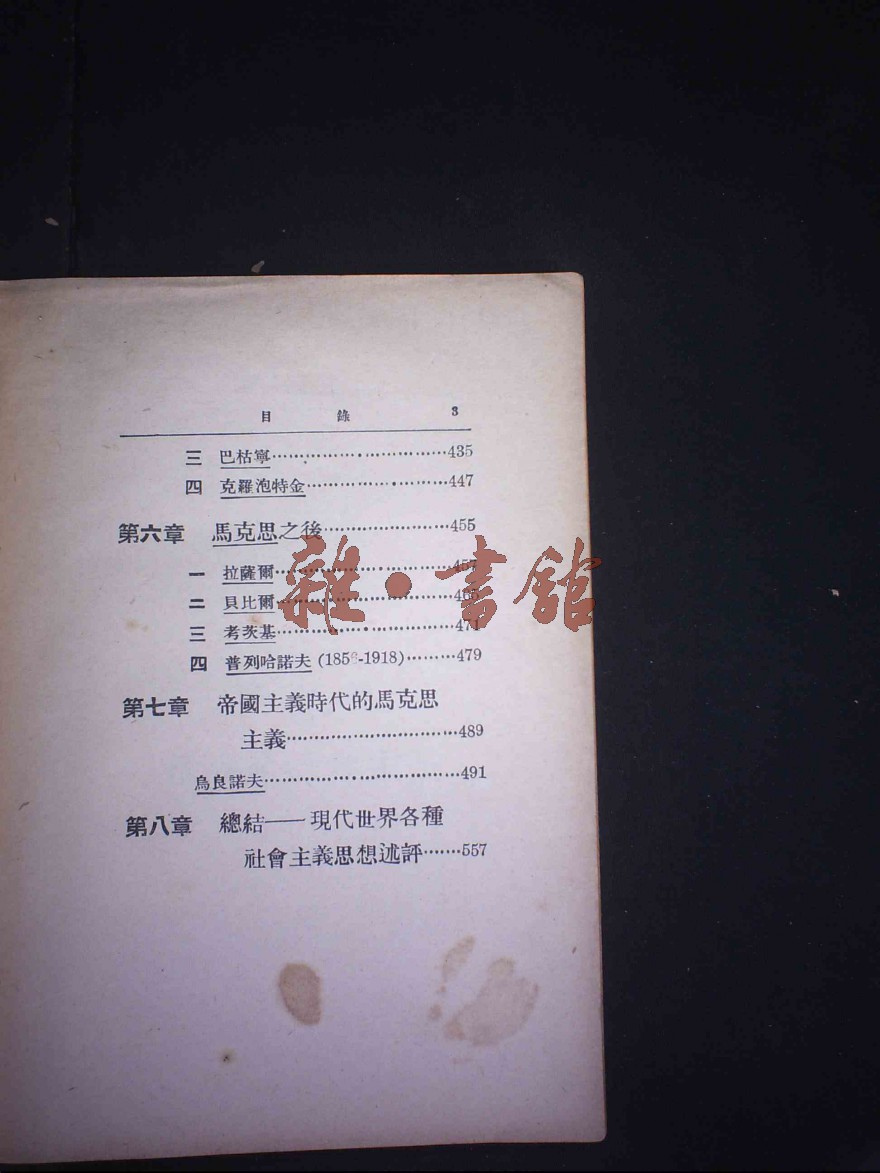 目 錄 3
三 巴枯寧 435
四 克羅泡特金 447
第六章 馬克思之後 455
一 拉薩爾 457
二 貝比爾
三 考茨基 471
四 普列哈諾夫 (1856-1918) 479
第七章 帝國主義時代的馬克思
主義 489
烏良諾夫 491
第八章 總結——現代世界各種
社會主義思想述評 557
雜·書館